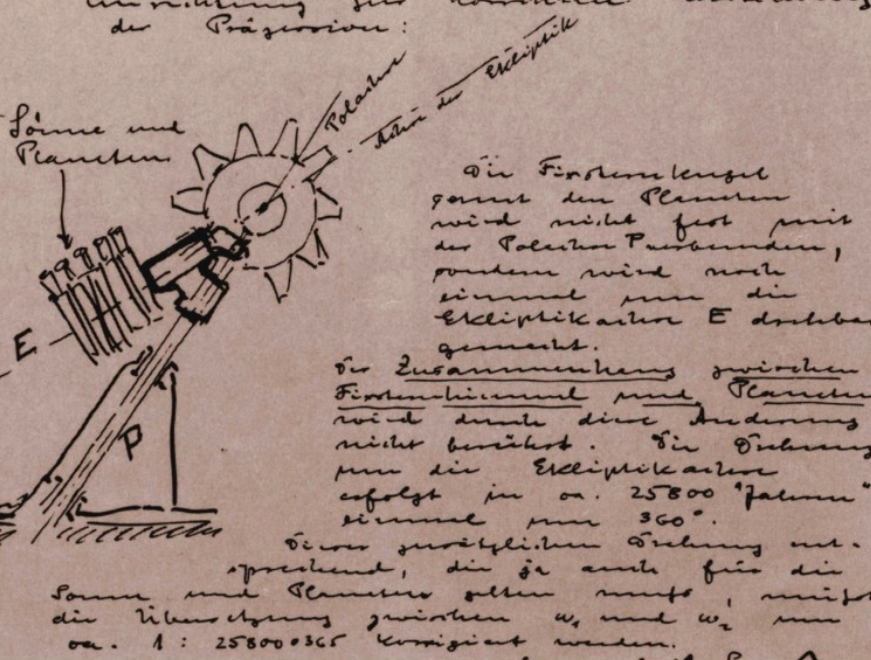 der Präzession:
Polachse
Achse der Ekliptik
Sonne und
Planeten
E
P
Die Fixsternkugel
samt den Planeten
wird nicht fest mit
der Polachse P verbunden,
sondern wird noch
einmal um die
Ekliptikachse E drehbar
gemacht.
Der Zusammenhang zwischen
Fixsternhimmel und Planeten
wird durch diese Änderung
nicht berührt. Die Drehung
um die Ekliptikachse
erfolgt in ca. 25800 "Jahren"
einmal um 360°.
Dieser zusätzlichen Drehung ent-
sprechend, die ja auch für die
Sonne und Planeten gelten muß, müßt
die Übersetzung zwischen ω₁ und ω₂ um
ca. 1 : 25800·365 korrigiert werden.